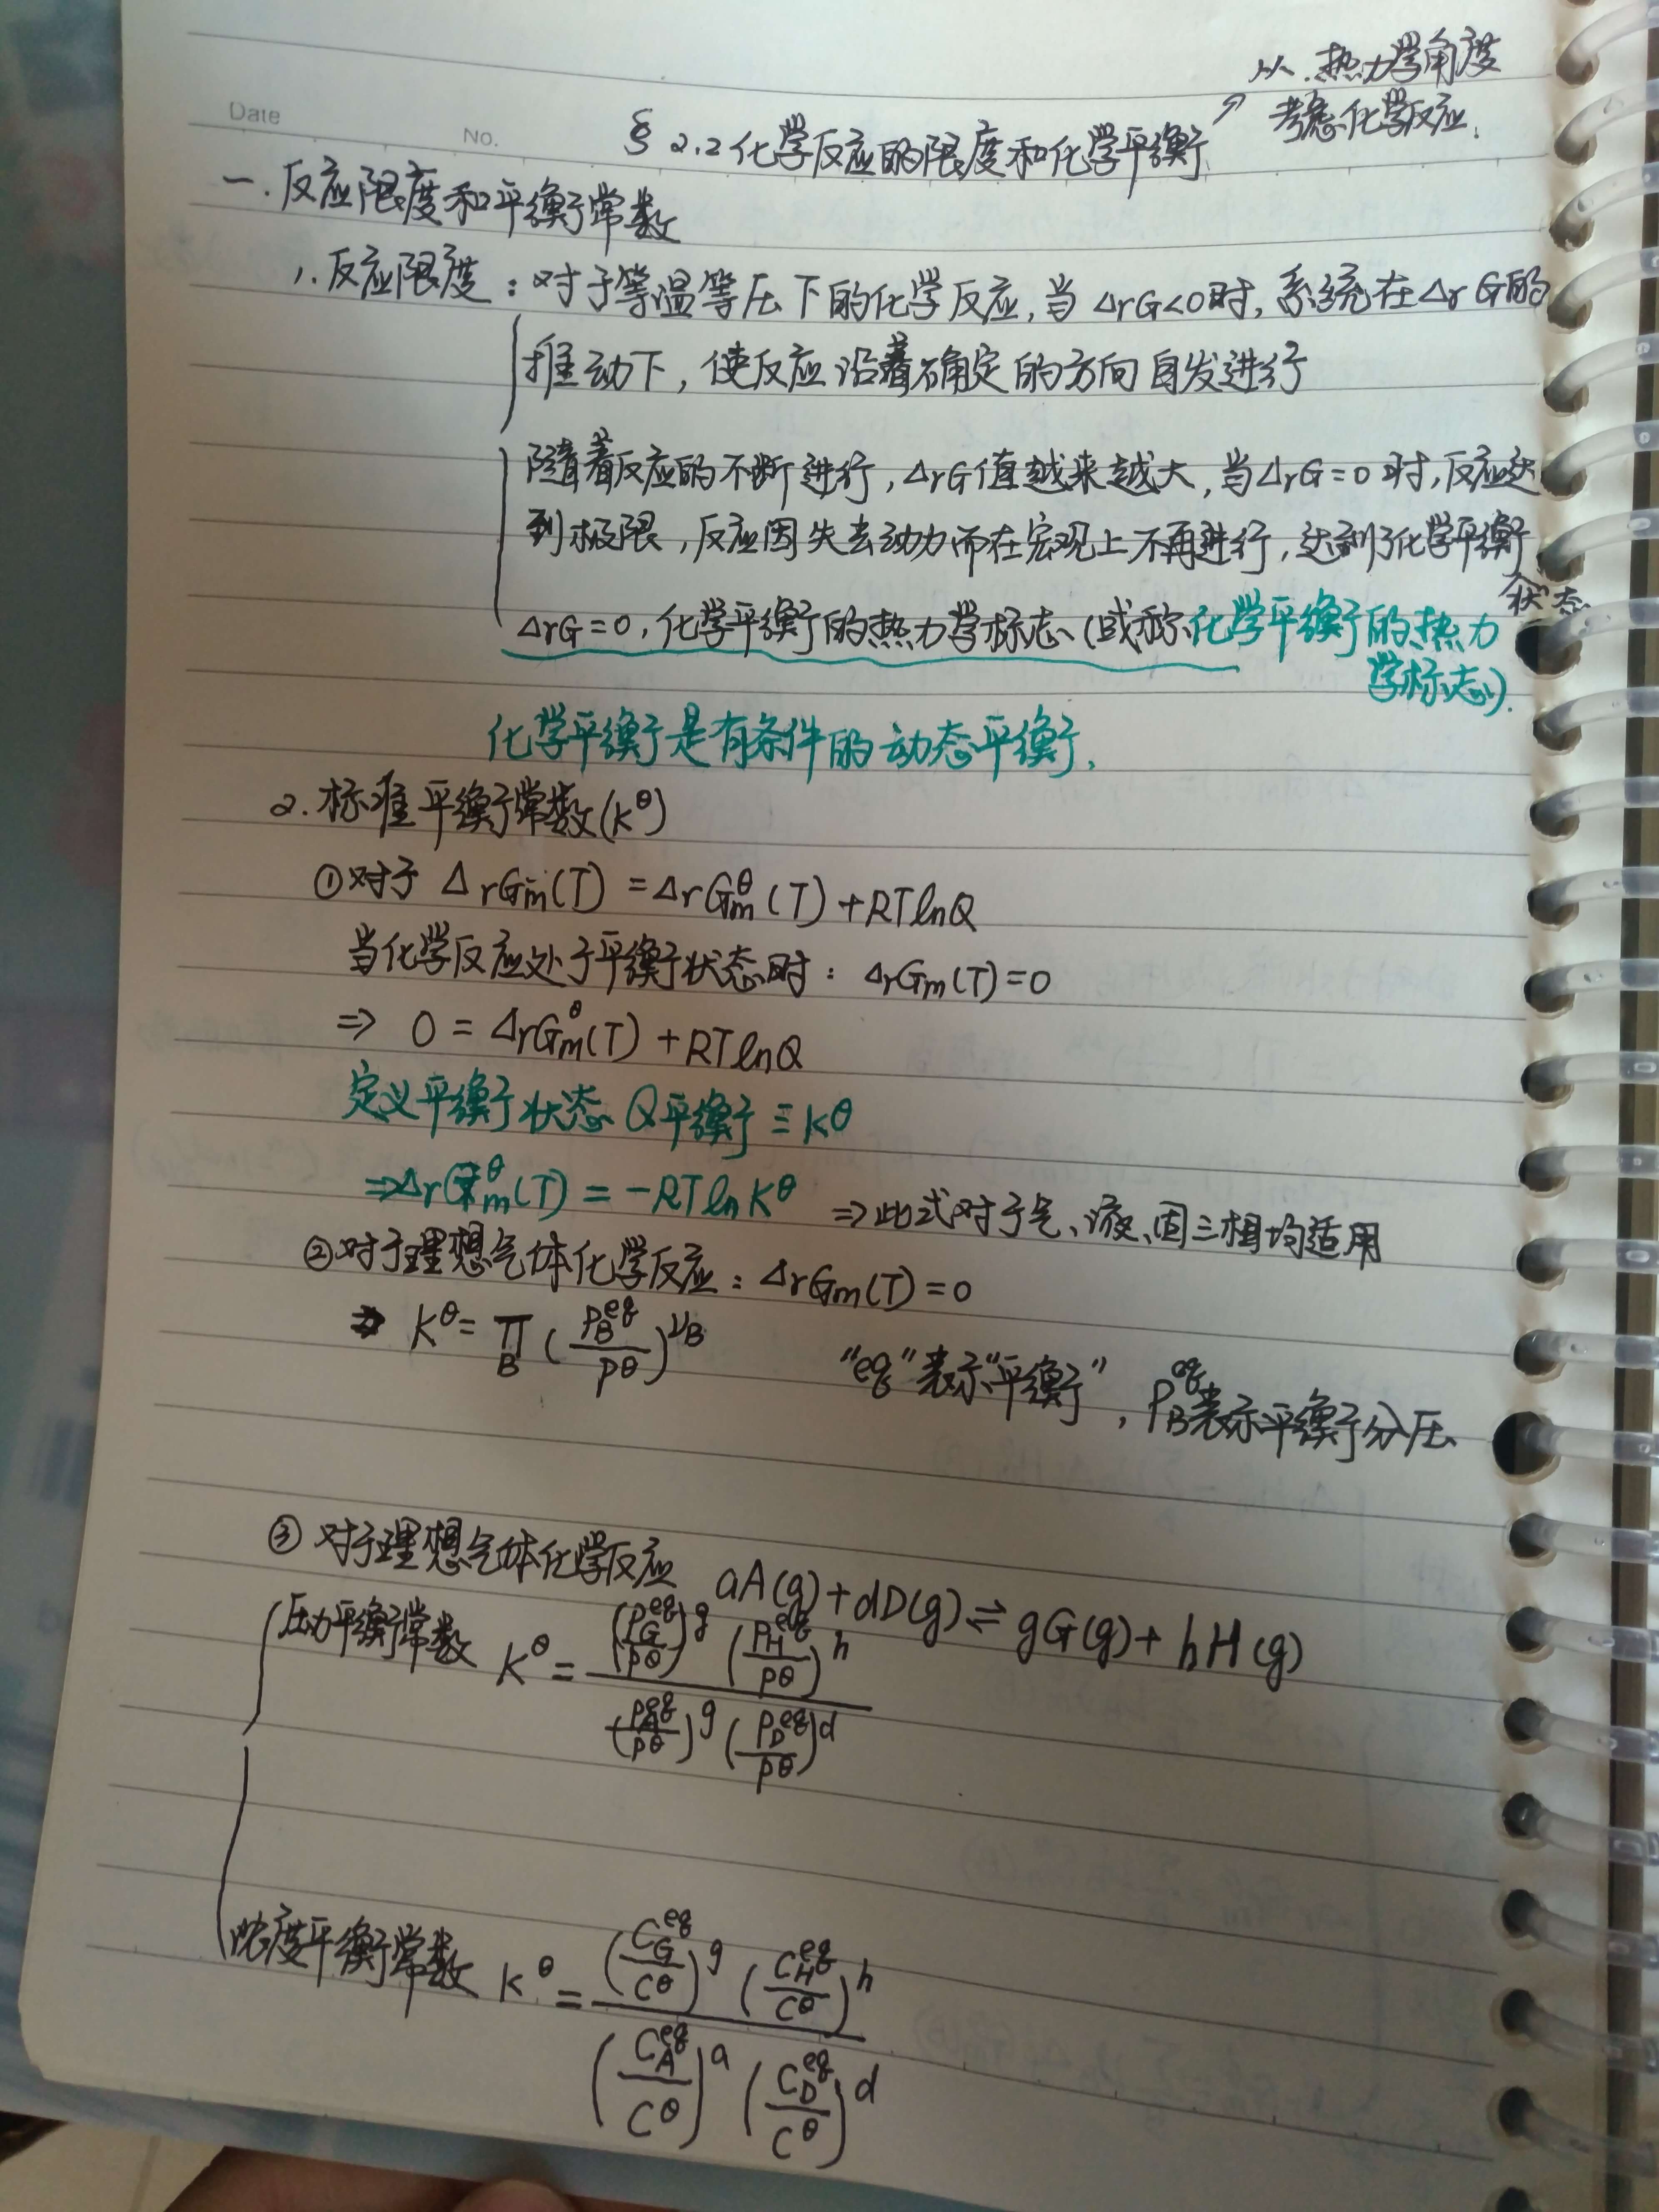 从热力学角度
考虑化学反应.
Date
No.
§2.2化学反应的限度和化学平衡 ↗
一.反应限度和平衡常数
1.反应限度：对于等温等压下的化学反应,当ΔrG<0时,系统在ΔrG的
推动下，使反应沿着确定的方向自发进行
随着反应的不断进行,ΔrG值越来越大,当ΔrG=0时,反应达
到极限,反应因失去动力而在宏观上不再进行,达到了化学平衡
状态
ΔrG=0,化学平衡的热力学标志(或称化学平衡的热力
学标志).
化学平衡是有条件的动态平衡.
2.标准平衡常数(K^θ)
①对于 ΔrGm(T)=ΔrGm^θ(T)+RTlnQ
当化学反应处于平衡状态时：ΔrGm(T)=0
⇒ 0=ΔrGm^θ(T)+RTlnQ
定义平衡状态Q平衡≡K^θ
⇒ΔrGm^θ(T)=-RTlnK^θ ⇒此式对于气、液、固三相均适用
②对于理想气体化学反应：ΔrGm(T)=0
⇒ K^θ=∏_B(P_B^eq/P^θ)^νB
"eq"表示"平衡"，P_B^eq表示平衡分压
③对于理想气体化学反应 aA(g)+dD(g)⇌gG(g)+hH(g)
压力平衡常数 K^θ=(P_G^eq/P^θ)^g(P_H^eq/P^θ)^h/(P_A^eq/P^θ)^g(P_D^eq/P^θ)^d
浓度平衡常数 K^θ=(C_G^eq/C^θ)^g(C_H^eq/C^θ)^h/(C_A^eq/C^θ)^a(C_D^eq/C^θ)^d